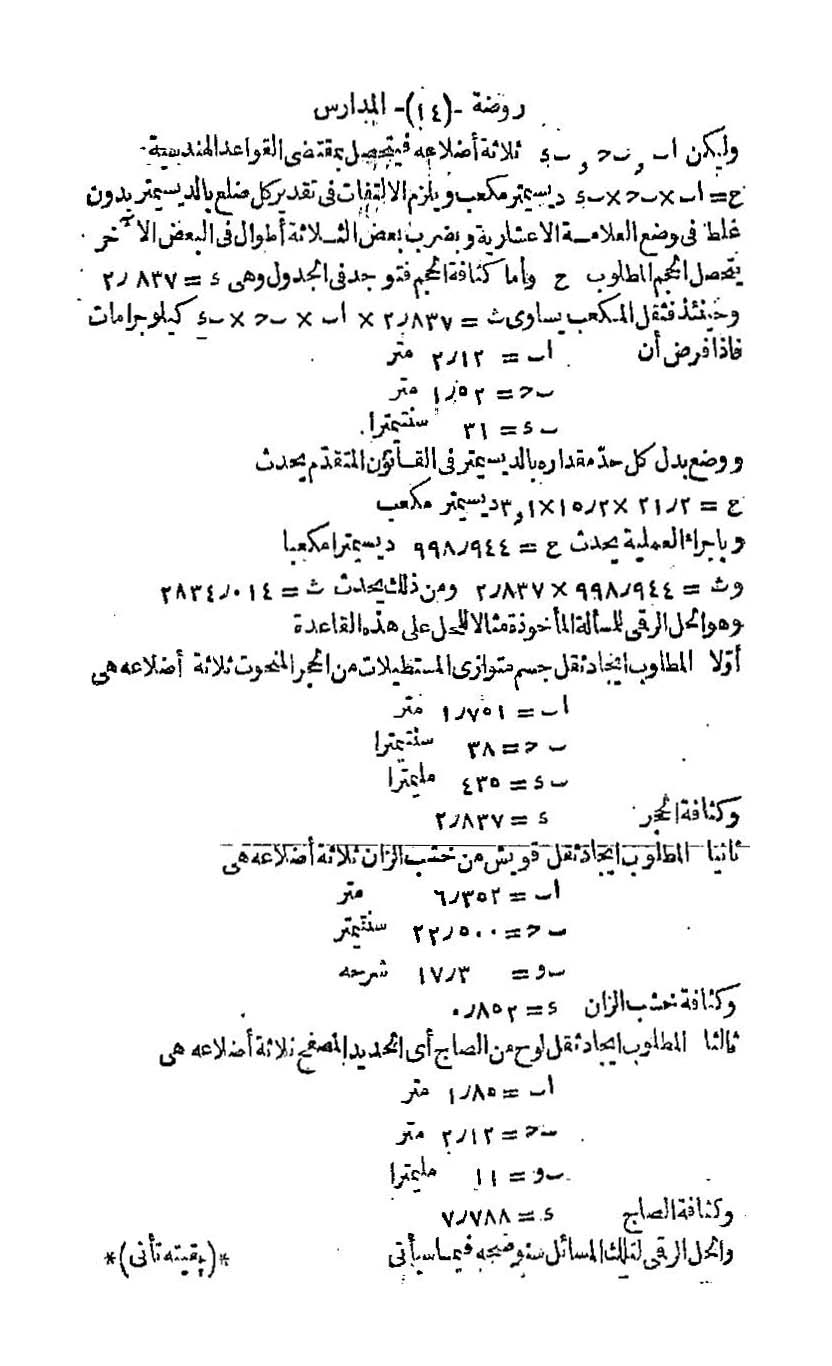 روضة -(١٤)- المدارس
وليكن اب و بح و بء ثلاثة أضلاعه فيتحصل بمقتضى القواعد الهندسية
ح = اب × بح × بء ديسيمتر مكعب ويلزم الالتفات فى تقدير كل ضلع بالديسيمتر بدون
غلط فى وضع العلامة الاعشارية وبضرب بعض الثلاثة أطوال فى البعض الآخر
يتحصل الحجم المطلوب ح وأما كثافة الحجم فتوجد فى الجدول وهى ء = ٢٫٨٣٧
وحينئذ فثقل المكعب يساوى ث = ٢٫٨٣٧ × اب × بح × بء كيلوجرامات
فاذا فرض أن اب = ٢٫١٢ متر
بح = ١٫٥٢ متر
بء = ٣١ سنتيمترا
ووضع بدل كل حد مقداره بالديسيمتر فى القانون المتقدّم يحدث
ح = ٢١٫٢ × ١٥٫٢ × ٣٫١ ديسيمتر مكعب
وباجراء العملية يحدث ح = ٩٩٨٫٩٤٤ ديسيمترا مكعبا
وث = ٩٩٨٫٩٤٤ × ٢٫٨٣٧ ومن ذلك يحدث ث = ٢٨٣٤٫٠١٤
وهو الحل الرقمى للمسألة المأخوذة مثالا للحل على هذه القاعدة
أوّلا المطلوب ايجاد ثقل جسم متوازى المستطيلات من الحجر المنحوت ثلاثة أضلاعه هى
اب = ١٫٧٥١ متر
بح = ٣٨ سنتيمترا
بء = ٤٣٥ مليمترا
وكثافة الحجر ء = ٢٫٨٣٧
ثانيا المطلوب ايجاد ثقل قويش من خشب الزان ثلاثة أضلاعه هى
اب = ٦٫٣٥٢ متر
بح = ٢٢٫٥٠٠ سنتيمتر
بو = ١٧٫٣ شرحه
وكثافة خشب الزان ء = ٠٫٨٥٢
ثالثا المطلوب ايجاد ثقل لوح من الصاج أى الحديد المصفح ثلاثة أضلاعه هى
اب = ١٫٨٥ متر
بح = ٢٫١٢ متر
بو = ١١ مليمترا
وكثافة الصاج ء = ٧٫٧٨٨
والحل الرقمى لتلك المسائل سنوضحه فيما سيأتى *(بقيته تأتى)*